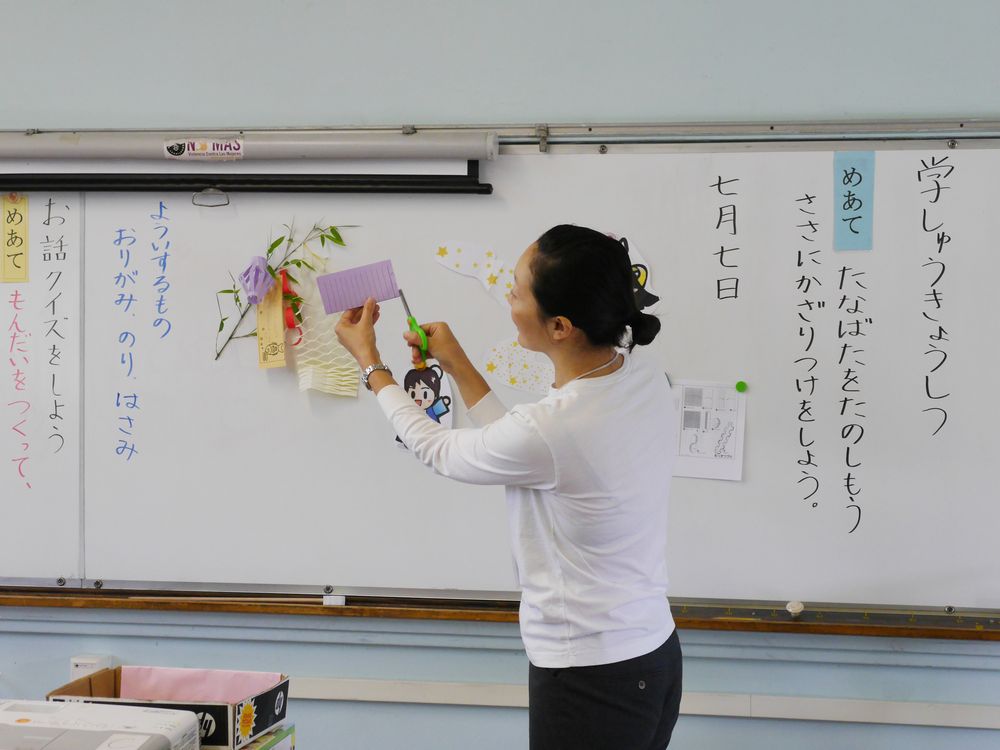 学しゅうきょうしつ
めあて
たなばたをたのしもう
ささにかざりつけをしよう。
七月七日
NO MAS
Violencia Contra Las Mujeres
よういするもの
おりがみ、のり、はさみ
お話クイズをしよう
めあて
もんだいをつくって、
hp